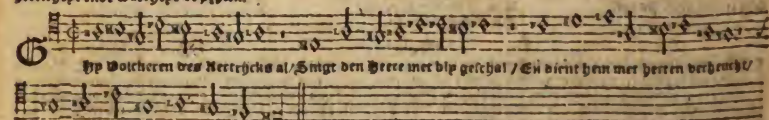 GHy Volckeren des Aertrijcks al/ Singt den Heere met bly geschal / En dient hem met herten verheucht/